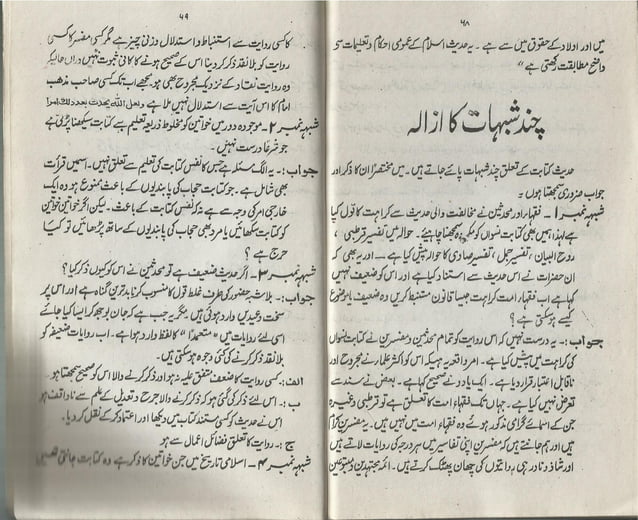 ۶۸
میں اور اولاد کے حقوق میں سے ہے ۔ یہ حدیث اسلام کے عمومی احکام و تعلیمات سے
واضح مطابقت رکھتی ہے "
چند شبہات کا ازالہ
حدیث کتابت کے تعلق چند شبہات پائے جاتے ہیں ۔ میں مختصراً ان کا ذکر اور
جواب ضروری سمجھتا ہوں ۔
شبہہ نمبر ۱ ۔ فقہاء اور محدثین نے مخالفت والی حدیث سے کراہت کا قول کیا
ہے لہذا ہمیں بھی کتابت نسواں کو مکروہ سمجھنا چاہیئے ۔ حوالہ میں تفسیر قرطبی ،
روح البیان ، تفسیر جمل ، تفسیر صاوی کا حوالہ پیش کیا ہے ۔ اور یہ بھی کہ
ان حضرات نے اس حدیث سے استناد کیا ہے اور اس کو ضعیف نہیں
کہا ہے اب فقہاء امت کراہت جیسا قانون مستنبط کریں وہ ضعیف یا موضوع
کیسے ہو سکتی ہے ؟
جواب :۔ یہ درست نہیں کہ اس روایت کو تمام محدثین و مفسرین نے کتابت نسواں
کی کراہت میں پیش کیا ہے ۔ امر واقعہ یہ ہیکہ اس کو اکثر علماء نے مجروح اور
ناقابل اعتبار قرار دیا ہے ۔ ایک یا دو نے صحیح کہا ہے ۔ بعض نے سند سے
تعرض نہیں کیا ہے ۔ جہاں تک فقہاء امت کا تعلق ہے تو قرطبی وغیرہ
جن کے اسمائے گرامی مذکور ہوئے وہ فقہاء امت میں نہیں ہیں ۔ یہ مفسرین کرام
ہیں اور ہم جانتے ہیں کہ مفسرین اپنی تفاسیر میں ہر درجہ کی روایات لاتے ہیں
اور شاذ و نادر ہی روایتوں کی چھان پھٹک کرتے ہیں ۔ ائمہ مجتہدین و متبوعین
۶۹
کا کسی روایت سے استنباط و استدلال وزنی چیز ہے مگر کسی مفسر کا کسی
روایت کو بلا نقد ذکر کر دینا اس کے صحیح ہونے کا کافی ثبوت نہیں دراں حالیکہ
وہ روایت نقاد کے نزدیک مجروح بھی ہو ۔ مجھے اب تک کسی صاحب مذہب
امام کا اس آیت سے استدلال نہیں ملا ہے ولعل اللہ یحدث بعد ذلک امرا
شبہہ نمبر ۲ ۔ موجودہ دور میں خواتین کو مخلوط ذریعہ تعلیم سے کتابت سیکھنا پڑتی ہے
جو شرعاً درست نہیں ۔
جواب :۔ یہ الگ مسئلہ ہے جس کا نفس کتابت کی تعلیم سے تعلق نہیں ۔ اسمیں قرأت
بھی شامل ہے ۔ جو کتابت حجاب کی پابندیوں کے باعث ممنوع ہو وہ ایک
خارجی امر کی وجہ سے ہے نہ کہ نفس کتابت کے باعث ۔ لیکن اگر خواتین خواتین
کو کتابت سکھائیں یا مرد بھی حجاب کی پابندیوں کے ساتھ پڑھائیں تو کیا
حرج ہے ؟
شبہہ نمبر ۳ ۔ اگر حدیث ضعیف ہے تو محدثین نے اس کو کیوں ذکر کیا ؟
جواب :۔ بلا شبہ حضور کی طرف غلط قول کا منسوب کرنا بدترین گناہ ہے اور اس پر
سخت وعیدیں وارد ہوئی ہیں ۔ مگر یہ جب ہے کہ جان بوجھ کر ایسا کیا جائے
اسی لئے روایات میں " متعمداً " کا لفظ وارد ہوا ہے ۔ اب روایات ضعیفہ کو
بلا نقد ذکر کرنے کی کئی وجوہ ہو سکتی ہیں ۔
الف :۔ کسی روایت کا ضعف متفق علیہ نہ ہو اور ذکر کرنے والا اس کو صحیح سمجھتا ہو ۔
ب :۔ اس لئے ذکر کی گئی ہو کہ ذکر کرنے والا جرح و تعدیل کے علم سے ناواقف ہو
اس نے حدیث کو کسی مستند کتاب میں دیکھا اور اعتماد کر کے نقل کر دیا ۔
ج :۔ روایت کا تعلق فضائل اعمال سے ہو
شبہہ نمبر ۴ ۔ اسلامی تاریخ میں جن خواتین کا ذکر ہے وہ کتابت جانتی تھیں